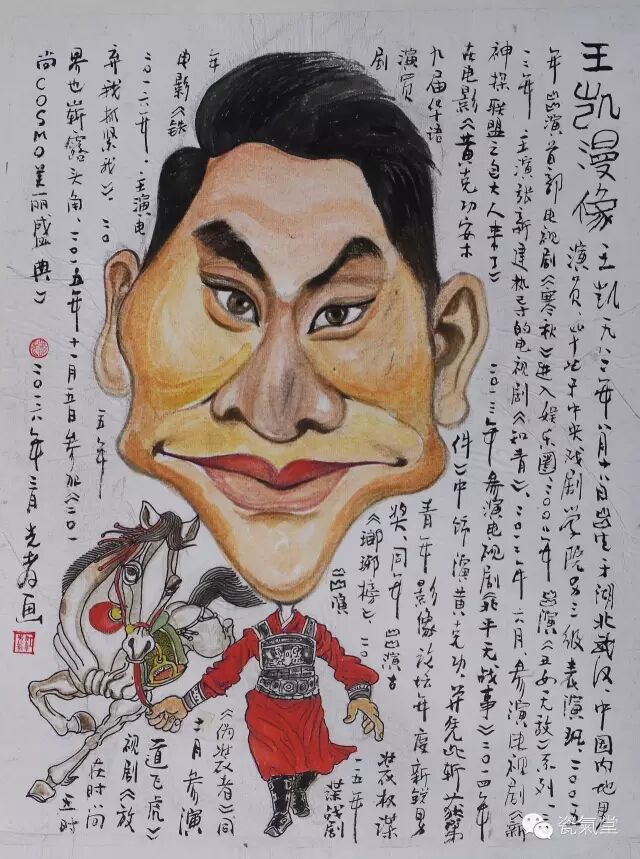 王凯漫像
王凯一九八二年八月十八日出生于湖北武汉、中国内地男
演员、毕业于中央戏剧学院03级表演班、二〇〇五
年出演首部电视剧《寒秋》进入娱乐圈、二〇〇八年出演《丑女无敌》系列、二〇
一二年、主演张新建执导的电视剧《知青》、二〇一二年六月、参演电视剧《新
神探联盟之包大人来了》二〇一三年参演电视剧《北平无战事》二〇一四年
在电影《黄克功案件》中饰演黄克功、并凭此斩获第
九届华语青年影像论坛年度新锐男
演员奖、同年出演古装权谋
剧《瑯琊榜》二〇一五年
出演谍战剧
《伪装者》同
年十二月参演
电影《铁道飞虎》
二〇一六年、主演电视剧《放
弃我抓紧我》、二〇一五年在时尚
界也崭露头角、二〇一五年十一月五日参加《二〇一五年时
尚COSMO美丽盛典》
二〇一六年三月光春画
瓷氣堂